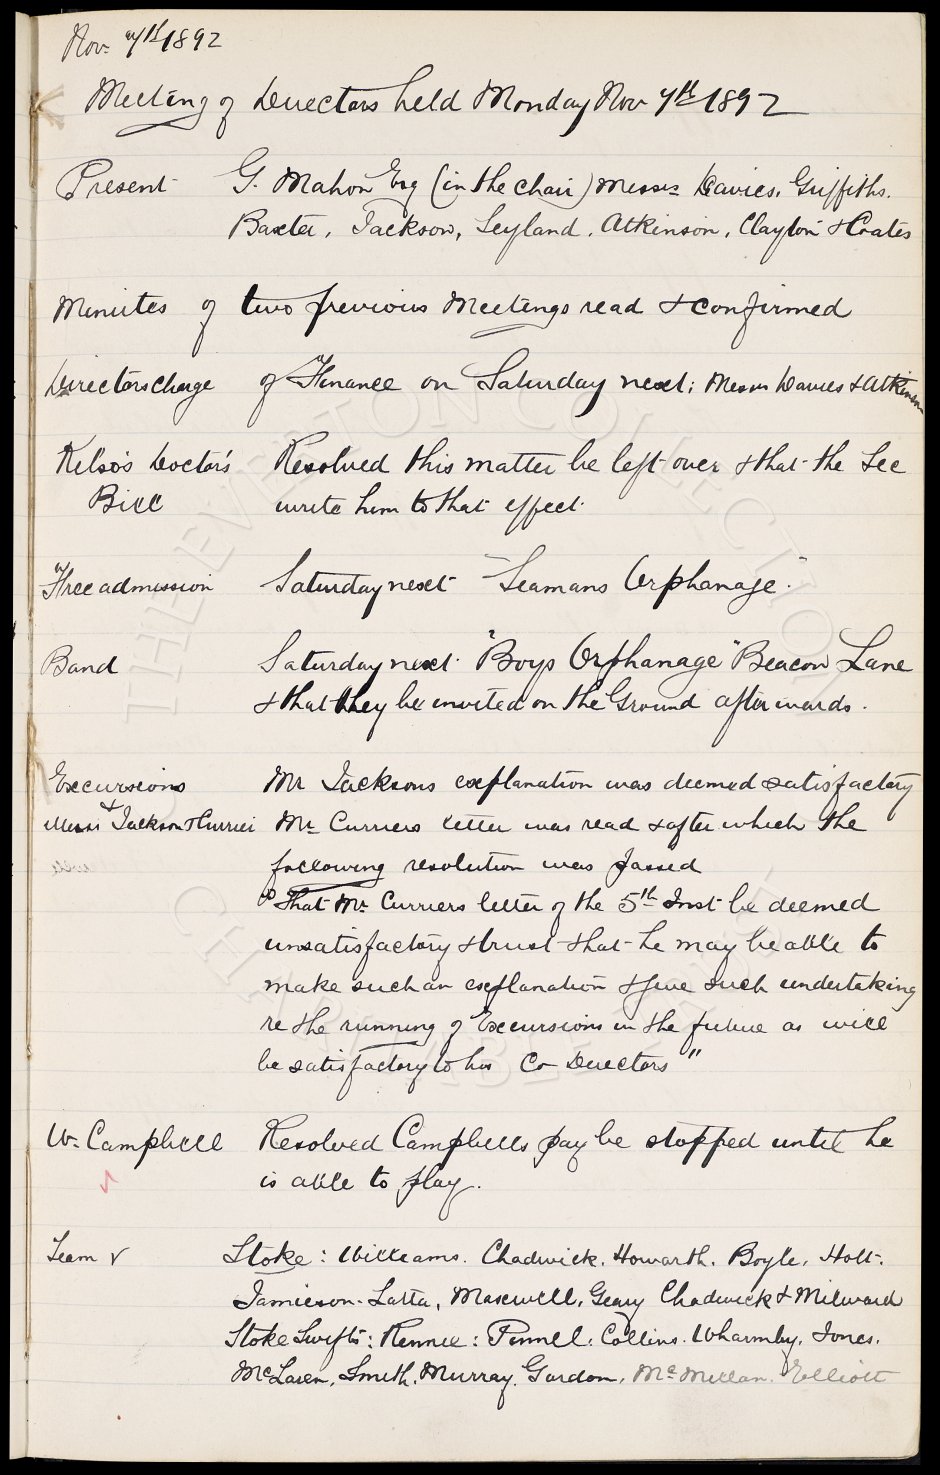 Nov. 7th 1892
Meeting of Directors held Monday Nov 7th 1892
Present G. Mahon Esq (in the chair) Messrs Davies, Griffiths,
Baxter, Jackson, Leyland, Atkinson, Clayton & Coates
Minutes of two previous Meetings read & confirmed
Directors Charge of Finance on Saturday next; Messrs Davies & Atkinson
Kelso's Doctor's Resolved this matter be left over & that the Sec
Bill write him to that effect.
Free admission Saturday next "Seamans Orphanage".
Band Saturday next "Boys Orphanage" Beacon Lane
& that they be invited on the Ground afterwards.
Excursions Mr Jacksons explanation was deemed satisfactory
& Messrs Jackson & Currier Mr. Curriers letter was read & after which the
following resolution was passed
"That Mr. Curriers letter of the 5th Inst be deemed
unsatisfactory & trust that he may be able to
make such an explanation & give such undertaking
re the running of Excursions in the future as will
be satisfactory to his Co Directors"
W. Campbell Resolved Campbells pay be stopped until he
is able to play.
Team √ Stoke: Williams. Chadwick, Howarth. Boyle. Holt.
Jamieson. Latta, Maxwell, Geary Chadwick & Milward
Stoke Swifts: Rennie: Pinnell. Collins. Wharmby. Jones.
McLaren, Smith. Murray. Gordon, McMillan. Elliott
THE EVERTON COLLECTION
CHARITABLE TRUST